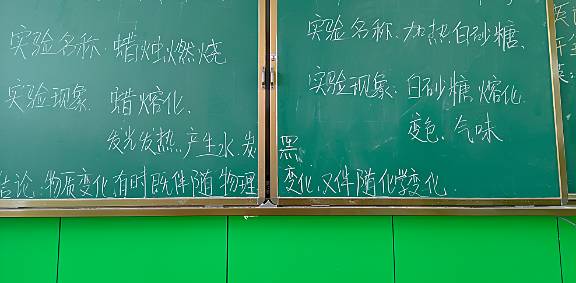 实验名称：蜡烛燃烧
实验现象：蜡熔化、
发光发热、产生水、炭黑
实验名称：加热白砂糖、
实验现象：白砂糖熔化
变色、气味
结论：物质变化有时既伴随物理变化，又伴随化学变化